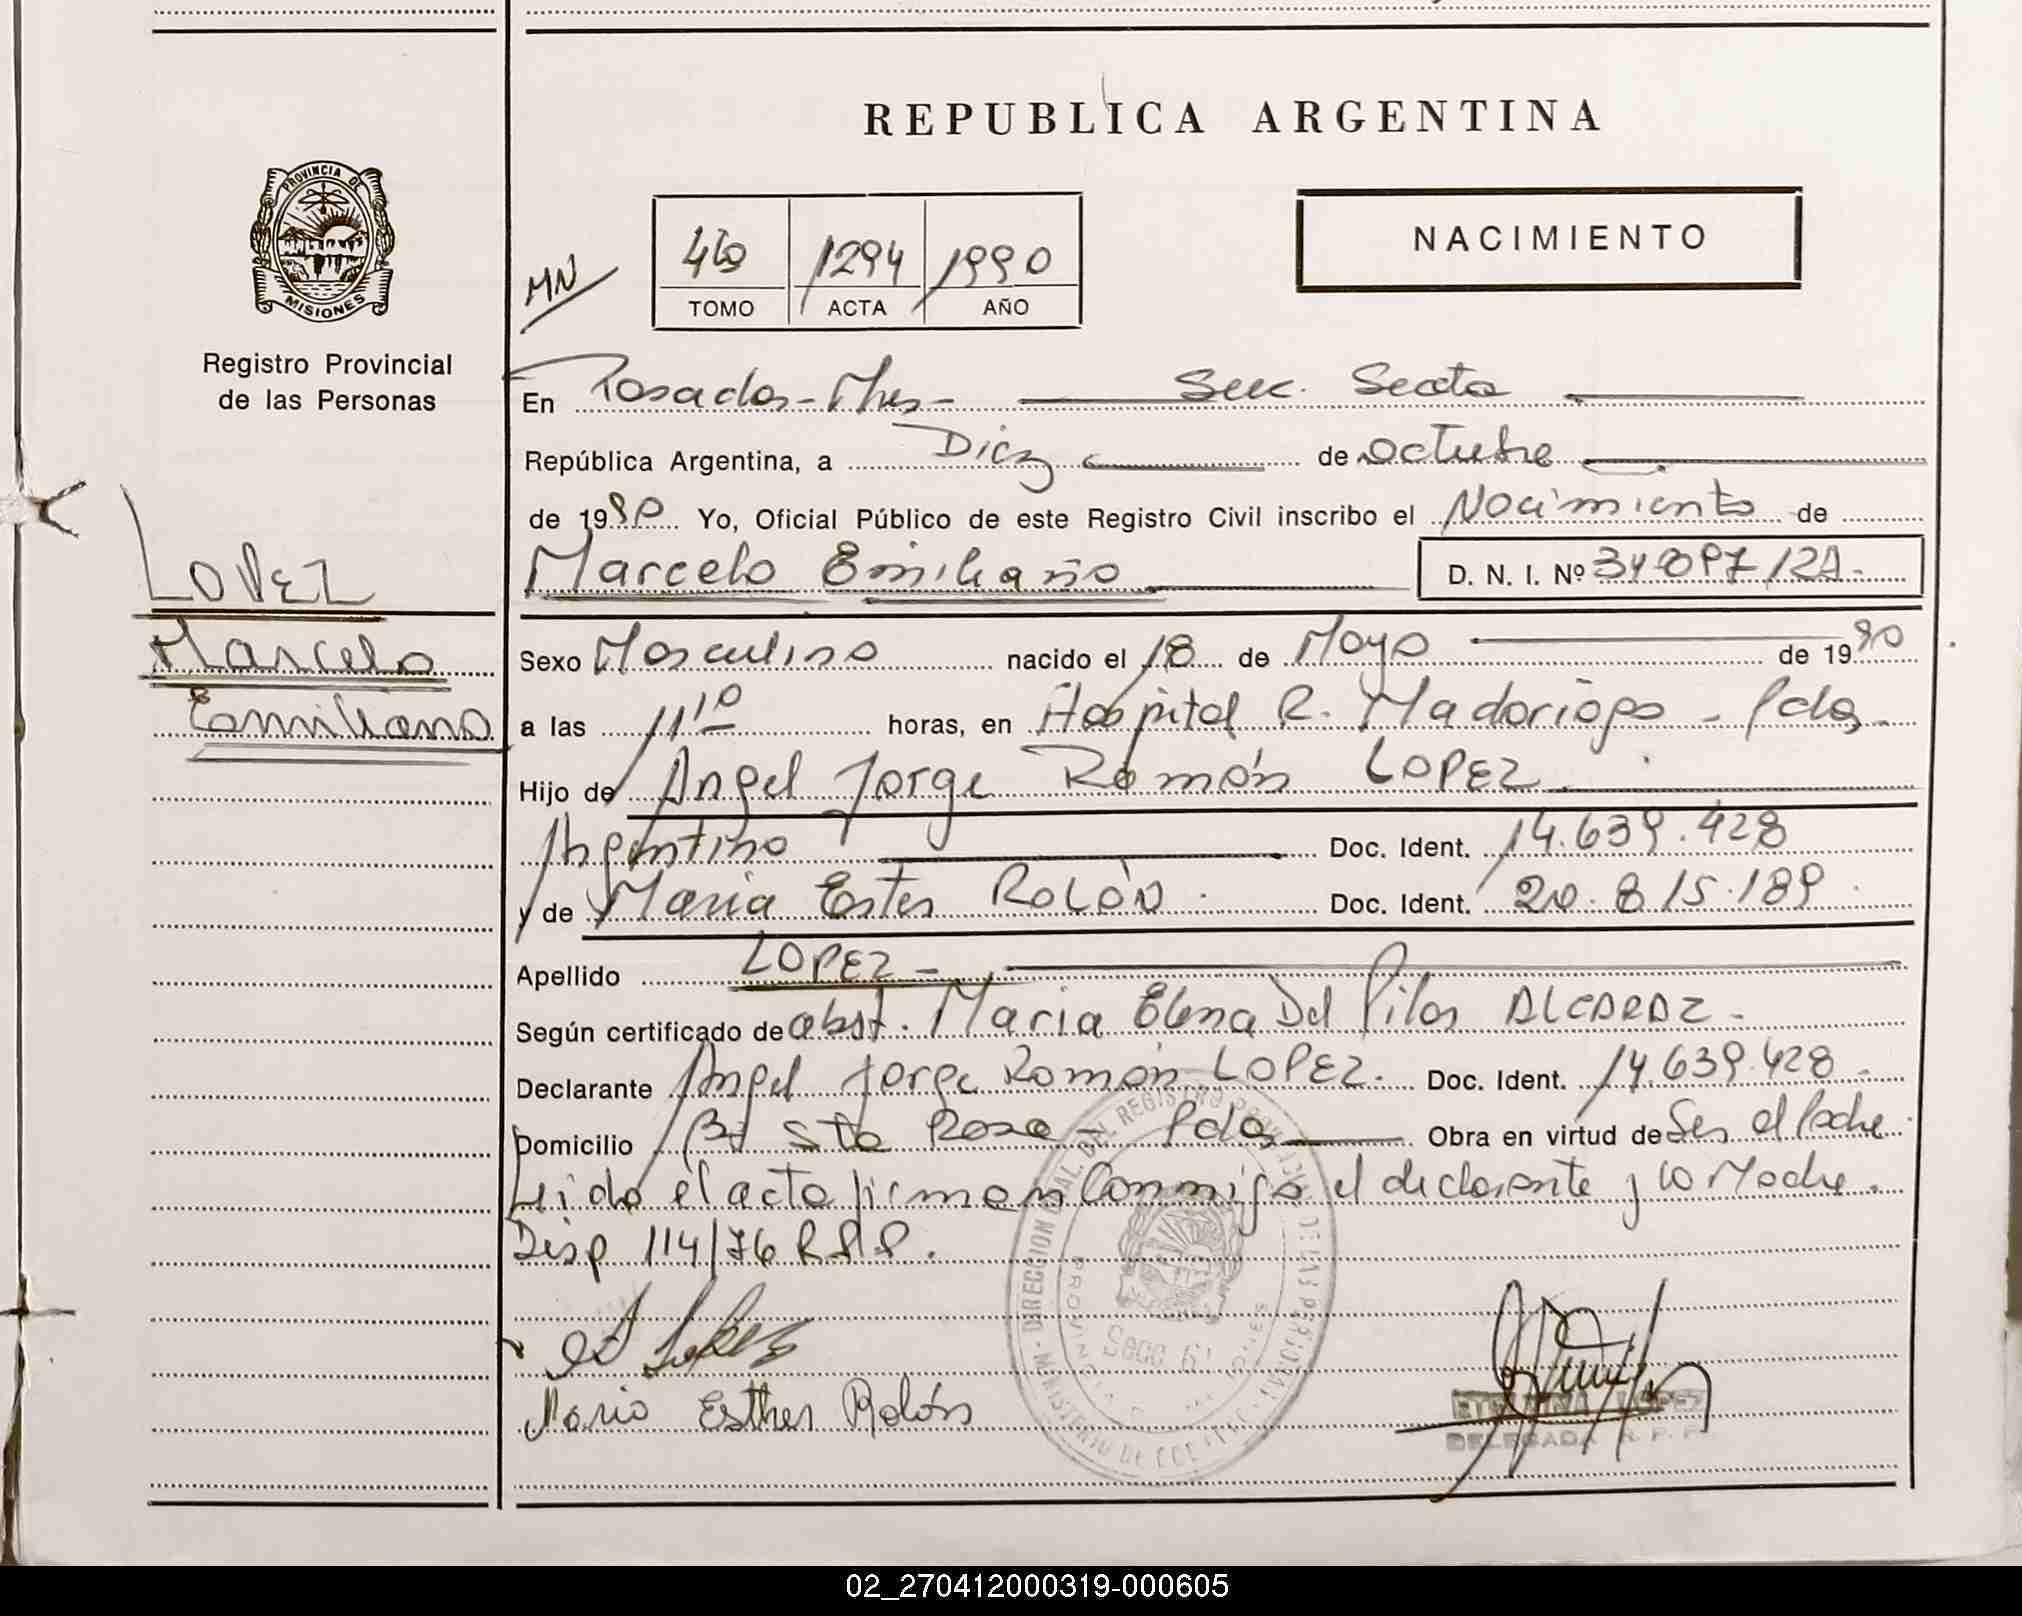 REPUBLICA ARGENTINA
PROVINCIA DE
MISIONES
Registro Provincial
de las Personas
MN
1294 1990
TOMO ACTA AÑO
NACIMIENTO
En Posadas-Mnes- Secc. Sexta
República Argentina, a Diez de octubre
de 1990 Yo, Oficial Público de este Registro Civil inscribo el Nacimiento de
Marcelo Emiliano D. N. I. Nº
LOPEZ
Marcelo
Emiliano
Sexo Masculino nacido el 18 de Mayo de 1990
a las 11 10 horas, en Hospital R. Madariaga - Pdas.
Hijo de Angel Jorge Ramón LOPEZ
Argentino Doc. Ident. 14.639.428
y de Maria Ester ROLÓN Doc. Ident. 20.815.189
Apellido LOPEZ -
Según certificado de obst. Maria Elena Del Pilar ALCARAZ -
Declarante Angel Jorge Ramón LOPEZ. Doc. Ident. 14.639.428 -
Domicilio Bº Sta Rosa - Pdas Obra en virtud de Ser el Padre
Leida el acta firman Conmigo el declarante y la Madre.
Disp 114/76 R.P.P.
Lopez
Maria Esther Rolón
Secc. 6
LOPEZ
DELEGADA R. P. P.
02_270412000319-000605